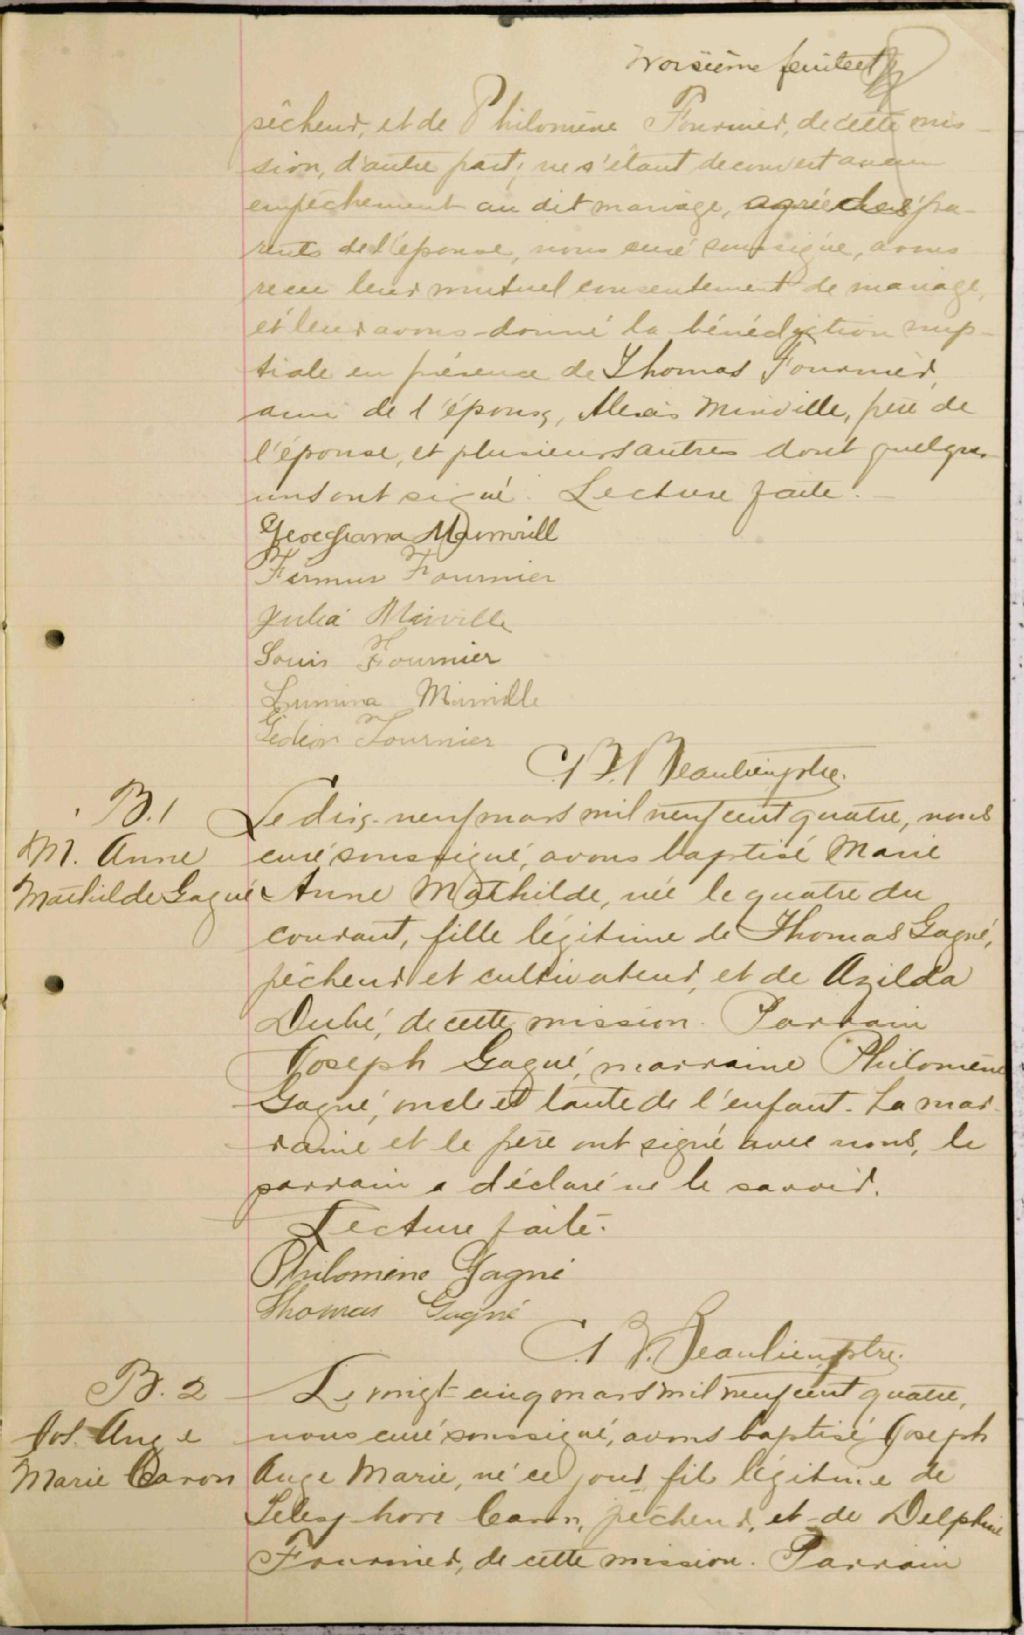 Troisième feuillet
pêcheur, et de Philomène Fournier, de cette mis-
sion, d'autre part; ne s'étant decouvert aucun
empêchement au dit mariage, agrée des pa-
rents de l'épouse, nous curé soussigné, avons
recu leur mutuel consentement de mariage,
et leur avons donné la bénédiction nup-
tiale en présence de Thomas Fournier,
ami de l'époux, Alexis Minville, père de
l'épouse, et plusieurs autres dont quelques
uns ont signé. Lecture faite.
Georgiana
Firmin Fournier
Julia Minville
Louis Fournier
Lumina Minville
Gédéon Fournier
Beaulieu, ptre.
B. 1
M. Anne
Mathilde Gagné
Le dix-neuf mars mil neuf cent quatre, nous
curé soussigné, avons baptisé Marie
Anne Mathilde, née le quatre du
courant, fille légitime de Thomas Gagné,
pêcheur et cultivateur, et de Azilda
Dubé, de cette mission. Parrain
Joseph Gagné, marraine Philomène
Gagné, oncle et tante de l'enfant. La mar-
raine et le père ont signé avec nous, le
parrain a déclaré ne le savoir.
Lecture faite.
Philomène Gagné
Thomas Gagné
Beaulieu, ptre.
B. 2
Jos. Ange
Marie Caron
Le vingt-cinq mars mil neuf cent quatre,
nous curé soussigné, avons baptisé Joseph
Ange Marie, né ce jour, fils légitime de
Télesphore Caron, pêcheur, et de Delphine
Fournier, de cette mission. Parrain